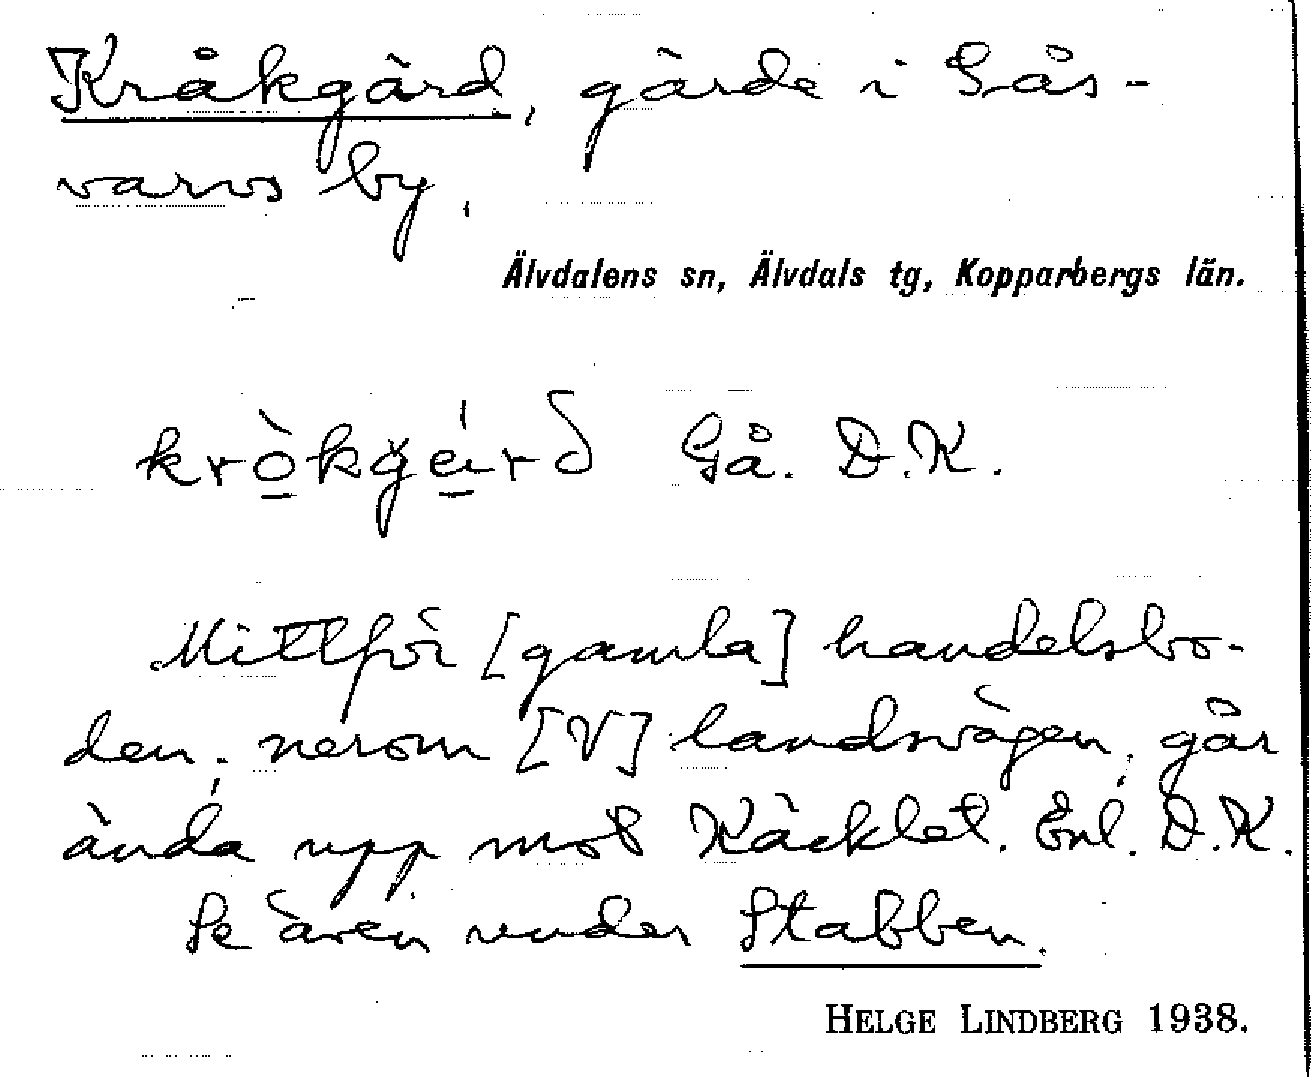 Kråkgärd, gärde i Gås-
varvs by.
Älvdalens sn, Älvdals tg, Kopparbergs län.
Gå. D.K.
Mittför [gamla] handelsbo-
den, nerom [V] landsvägen, går
ända upp mot Käcklet. Enl. D.K.
Se även under Stabben.
HELGE LINDBERG 1938.